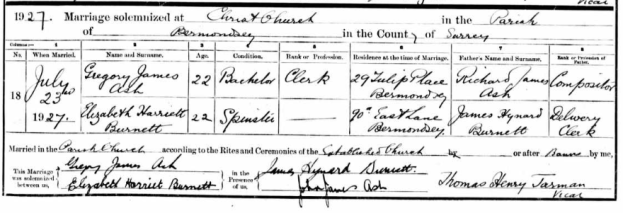 Vicar
1927. Marriage solemnized at Christ Church in the Parish
of Bermondsey in the County of Surrey
Columns:— 1 2 3 4 5 6 7 8
No. When Married. Name and Surname. Age. Condition. Rank or Profession. Residence at the time of Marriage. Father's Name and Surname. Rank or Profession of Father.
18 July 23rd 1927.
Gregory James Ash 22 Bachelor Clerk 29 Tulip Place Bermondsey Richard James Ash Compositor
Elizabeth Harriett Burnett 22 Spinster 90a East Lane Bermondsey James Hynard Burnett Delivery Clerk
Married in the Parish Church according to the Rites and Ceremonies of the Established Church by or after Banns by me,
This Marriage was solemnized between us,
Gregory James Ash
Elizabeth Harriet Burnett
in the Presence of us,
James Hynard Burnett.
John James Ash
Thomas Henry Tarman
Vicar